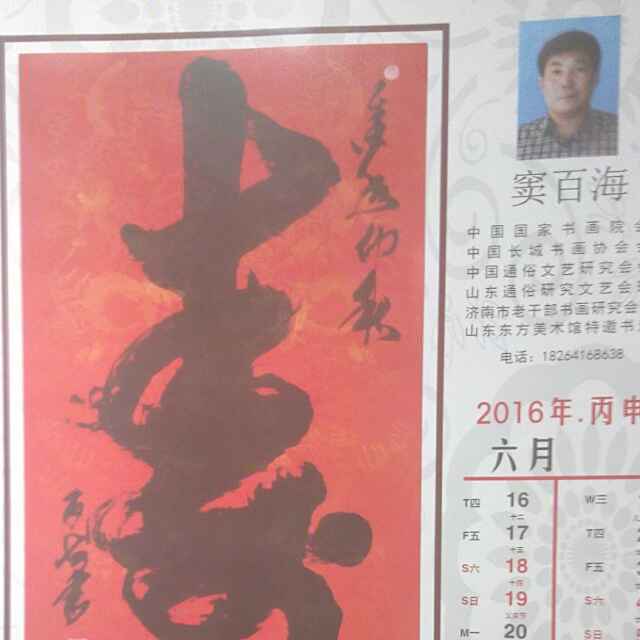 寿
百海书
窦百海
中国国家书画院
中国长城书画协会
中国通俗文艺研究会
山东通俗研究文艺会
济南市老干部书画研究会
山东东方美术馆特邀书
电话：18264168638
2016年.丙申
六月
T四 16 十二 W三
F五 17 十三 T四
S六 18 十四 F五
S日 19 父亲节 S六
M一 20 S日